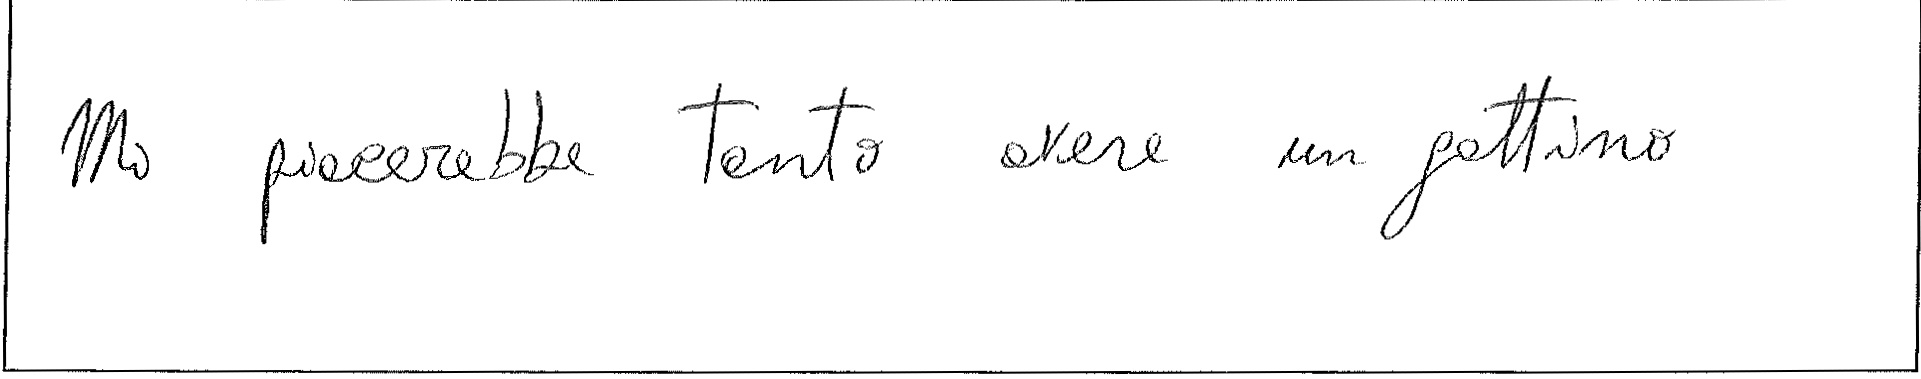 Mi piacerebbe tanto avere un gattino